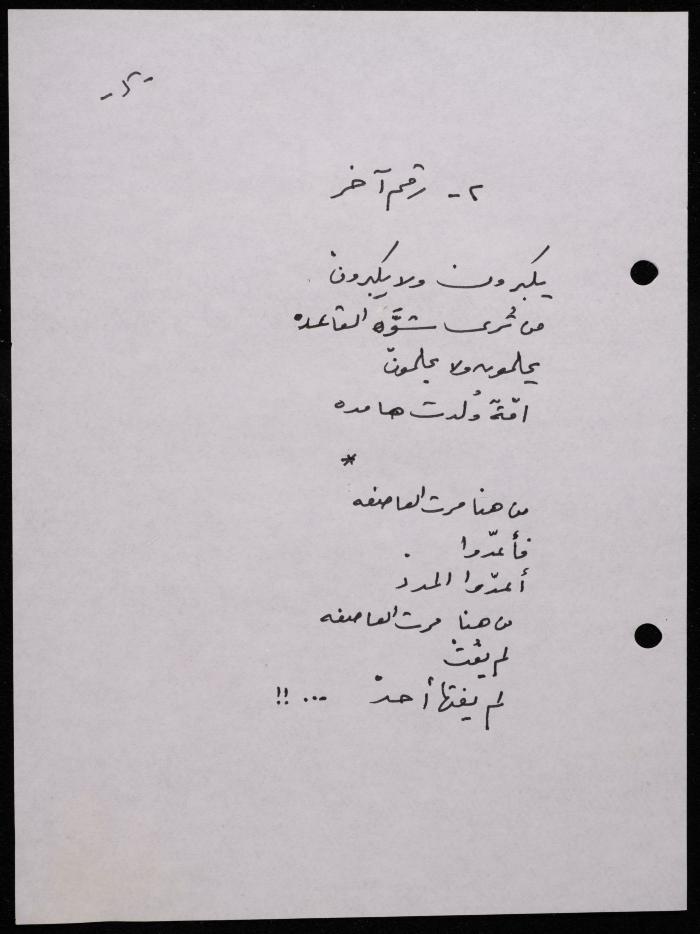 ٢- رقم آخر
يكبرون ولا يكبرون
من تُرى شوَّه القاعده
يحلمون ولا يحلمون
امّةٌ وُلدت هامده
*
من هنا مرت العاصفه
فأعدّوا
أعدّوا المدد
من هنا مرت العاصفه
لم يفُتْ
لم يفتها أحدْ ... !!